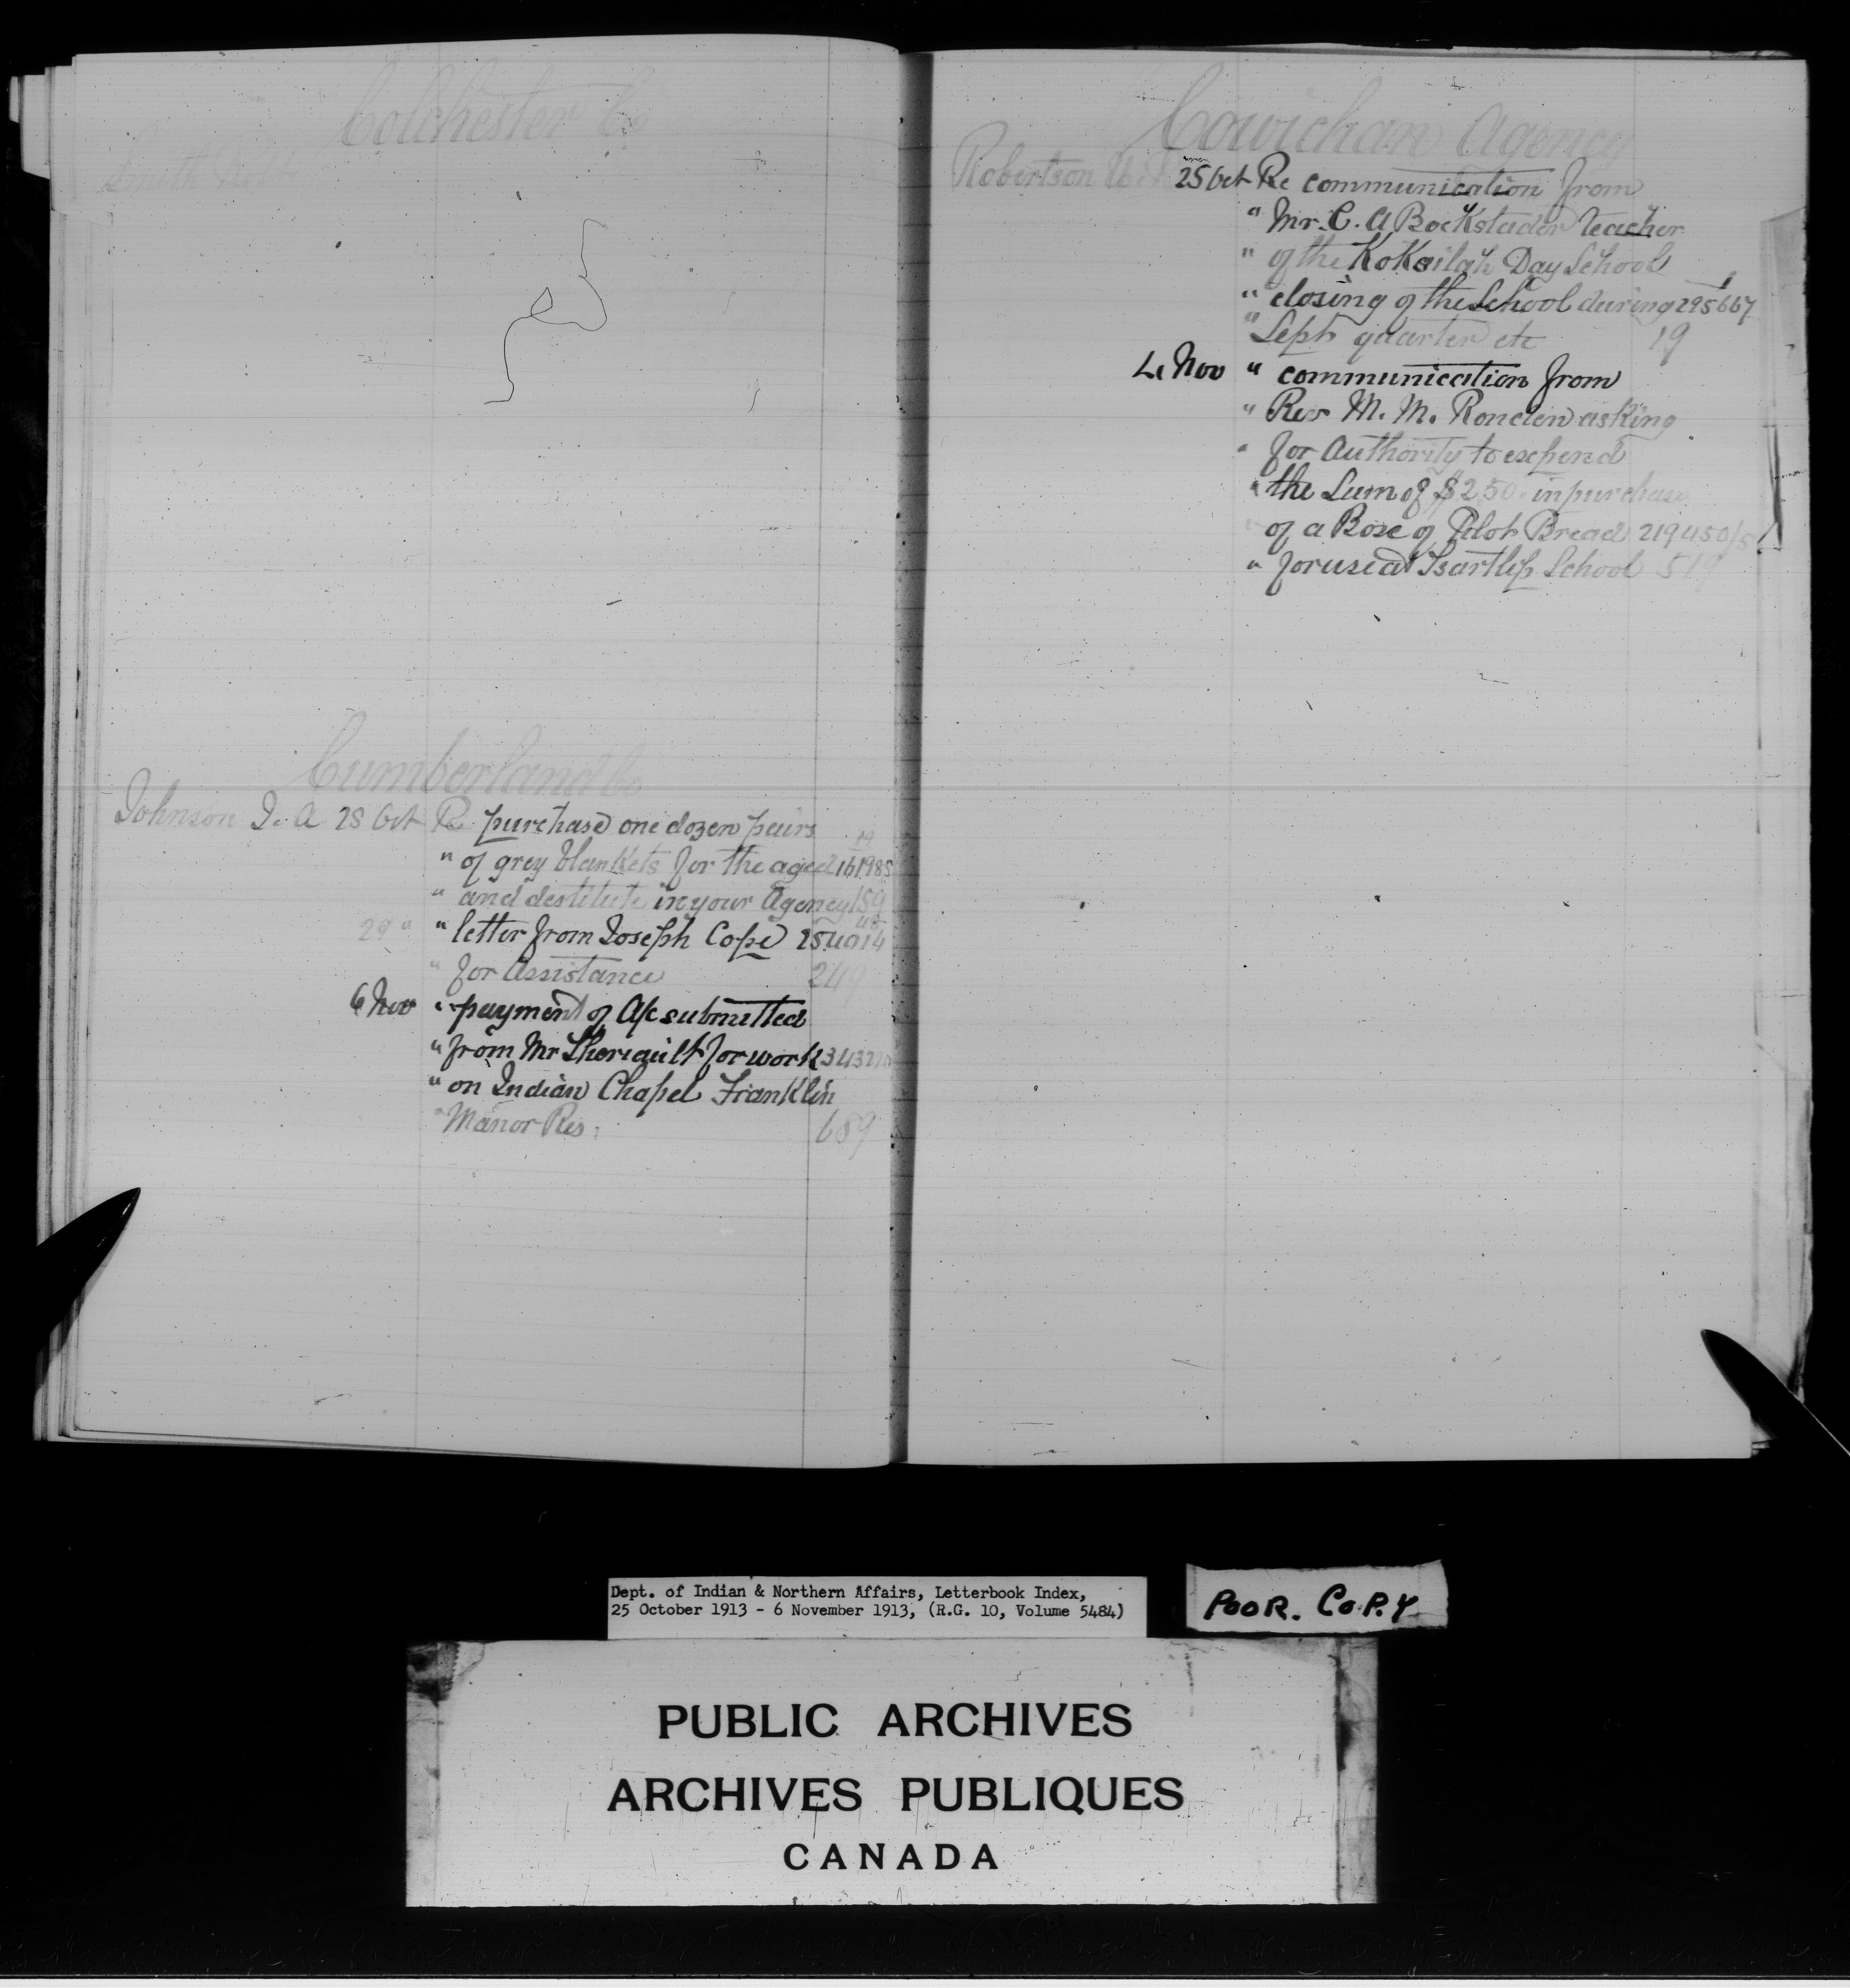 Colchester Co
Smith
Cumberland Co
Johnson J. A 28 Oct Re purchase one dozen pairs
" of grey blankets for the aged 161985
" and destitute in your Agency 159
29 " " letter from Joseph Cope 254014
" for Assistance 249
6 Nov " payment of A/c submitted
" from Mr Theriault for work
" on Indian Chapel Franklin
" Manor Res. 689
Cowichan Agency
Robertson 25 Oct Re communication from
" Mr. C. A Bockstader teacher
" of the KoKsilah Day School
" closing of the School during 295667
" Sept quarter etc 19
4 Nov " communication from
" Rev M. M. Ronden asking
" for Authority to expend
" the Sum of $2.50 in purchase
of a Box of Pilot Bread 219450/5
" for use at Tsartlip School 519
Dept. of Indian & Northern Affairs, Letterbook Index,
25 October 1913 - 6 November 1913, (R.G. 10, Volume 5484)
POOR. COPY
PUBLIC ARCHIVES
ARCHIVES PUBLIQUES
CANADA